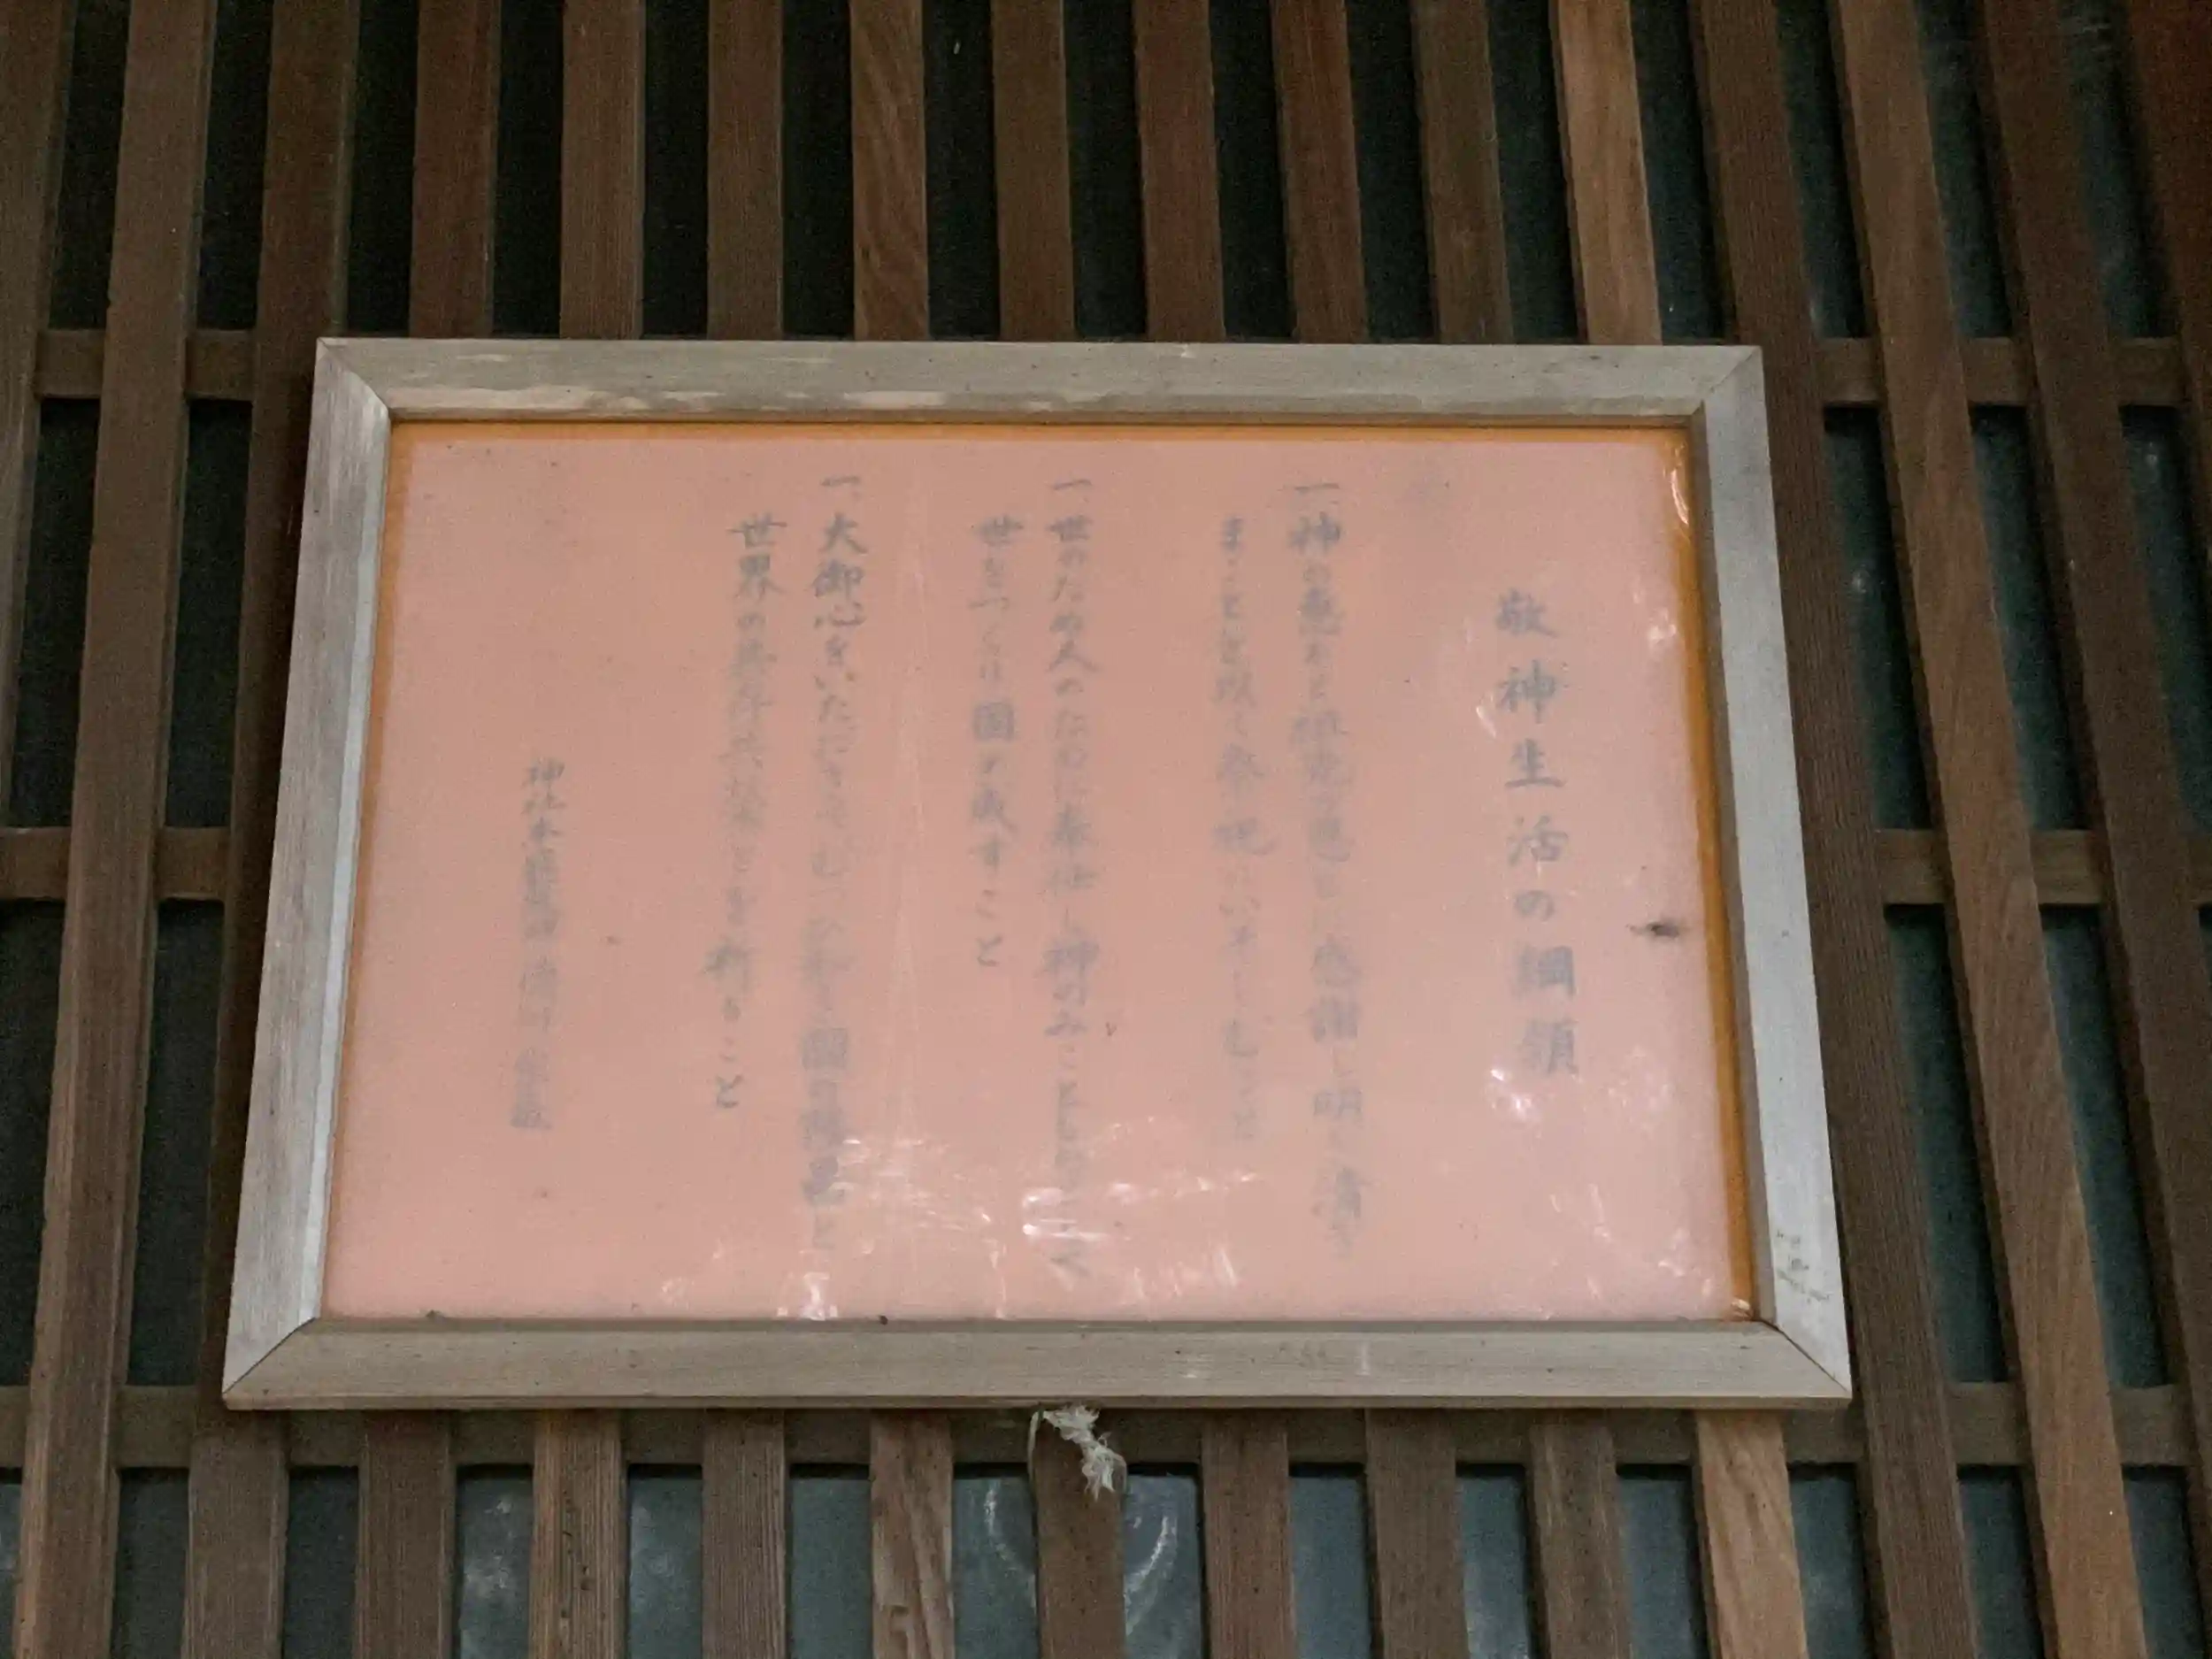 敬神生活の綱領
一、神の恵みと祖先の恩とに感謝し明き清き
まことを以て祭祀にいそしむこと
一、世のため人のために奉仕し神のみこともちとして
世をつくり固め成すこと
一、大御心をいただきてむつび和らぎ国の隆昌と
世界の共存共栄とを祈ること
神社本庁統理 徳川